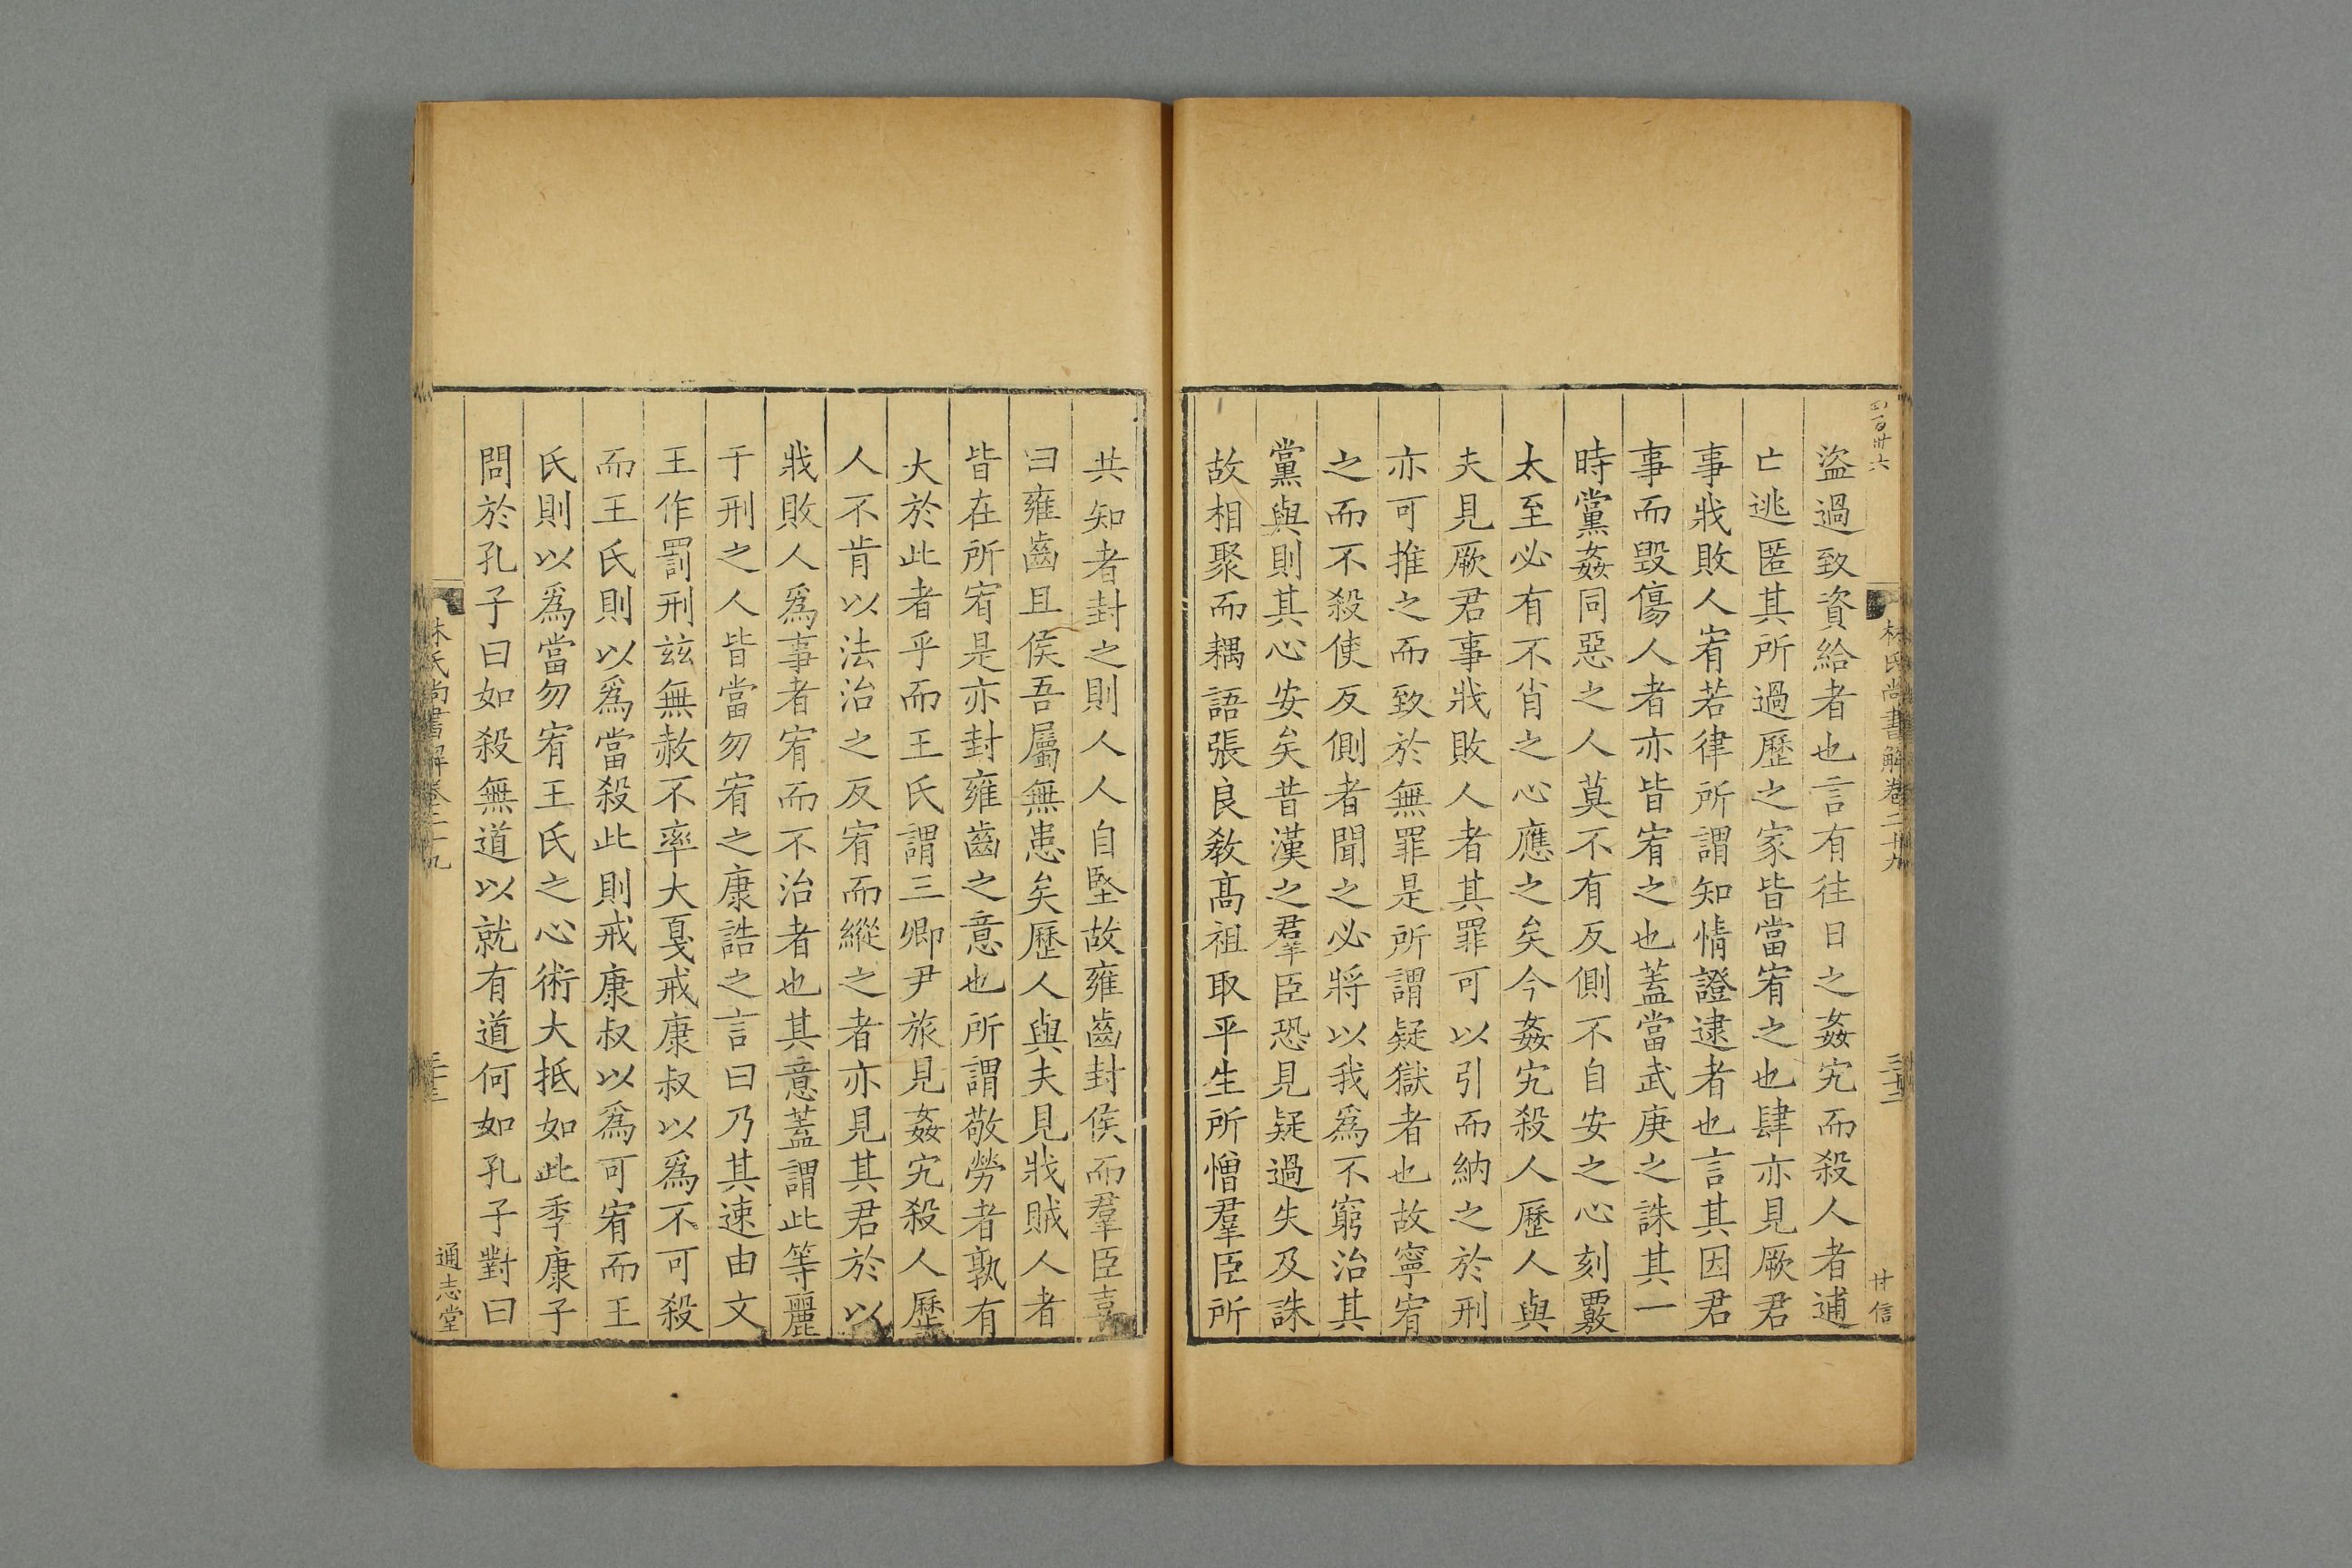 四百卅六
林氏尚書解卷二十九
三十二
甘信
盜過致資給者也言有往日之姦宄而殺人者逋
亡逃匿其所過歷之家皆當宥之也肆亦見厥君
事戕敗人宥若律所謂知情證逮者也言其因君
事而毀傷人者亦皆宥之也蓋當武庚之誅其一
時黨姦同惡之人莫不有反側不自安之心刻覈
太至必有不肖之心應之矣今姦宄殺人歷人與
夫見厥君事戕敗人者其罪可以引而納之於刑
亦可推之而致於無罪是所謂疑獄者也故寧宥
之而不殺使反側者聞之必將以我爲不窮治其
黨與則其心安矣昔漢之羣臣恐見疑過失及誅
故相聚而耦語張良敎高祖取平生所憎羣臣所
共知者封之則人人自堅故雍齒封侯而羣臣喜
曰雍齒且侯吾屬無患矣歷人與夫見戕賊人者
皆在所宥是亦封雍齒之意也所謂敬勞者孰有
大於此者乎而王氏謂三卿尹旅見姦宄殺人歷
人不肯以法治之反宥而縱之者亦見其君於以
戕敗人爲事者宥而不治者也其意蓋謂此等麗
于刑之人皆當勿宥之康誥之言曰乃其速由文
王作罰刑玆無赦不率大戛戒康叔以爲不可殺
而王氏則以爲當殺此則戒康叔以爲可宥而王
氏則以爲當勿宥王氏之心術大抵如此季康子
問於孔子曰如殺無道以就有道何如孔子對曰
林氏尚書解卷二十九
通志堂